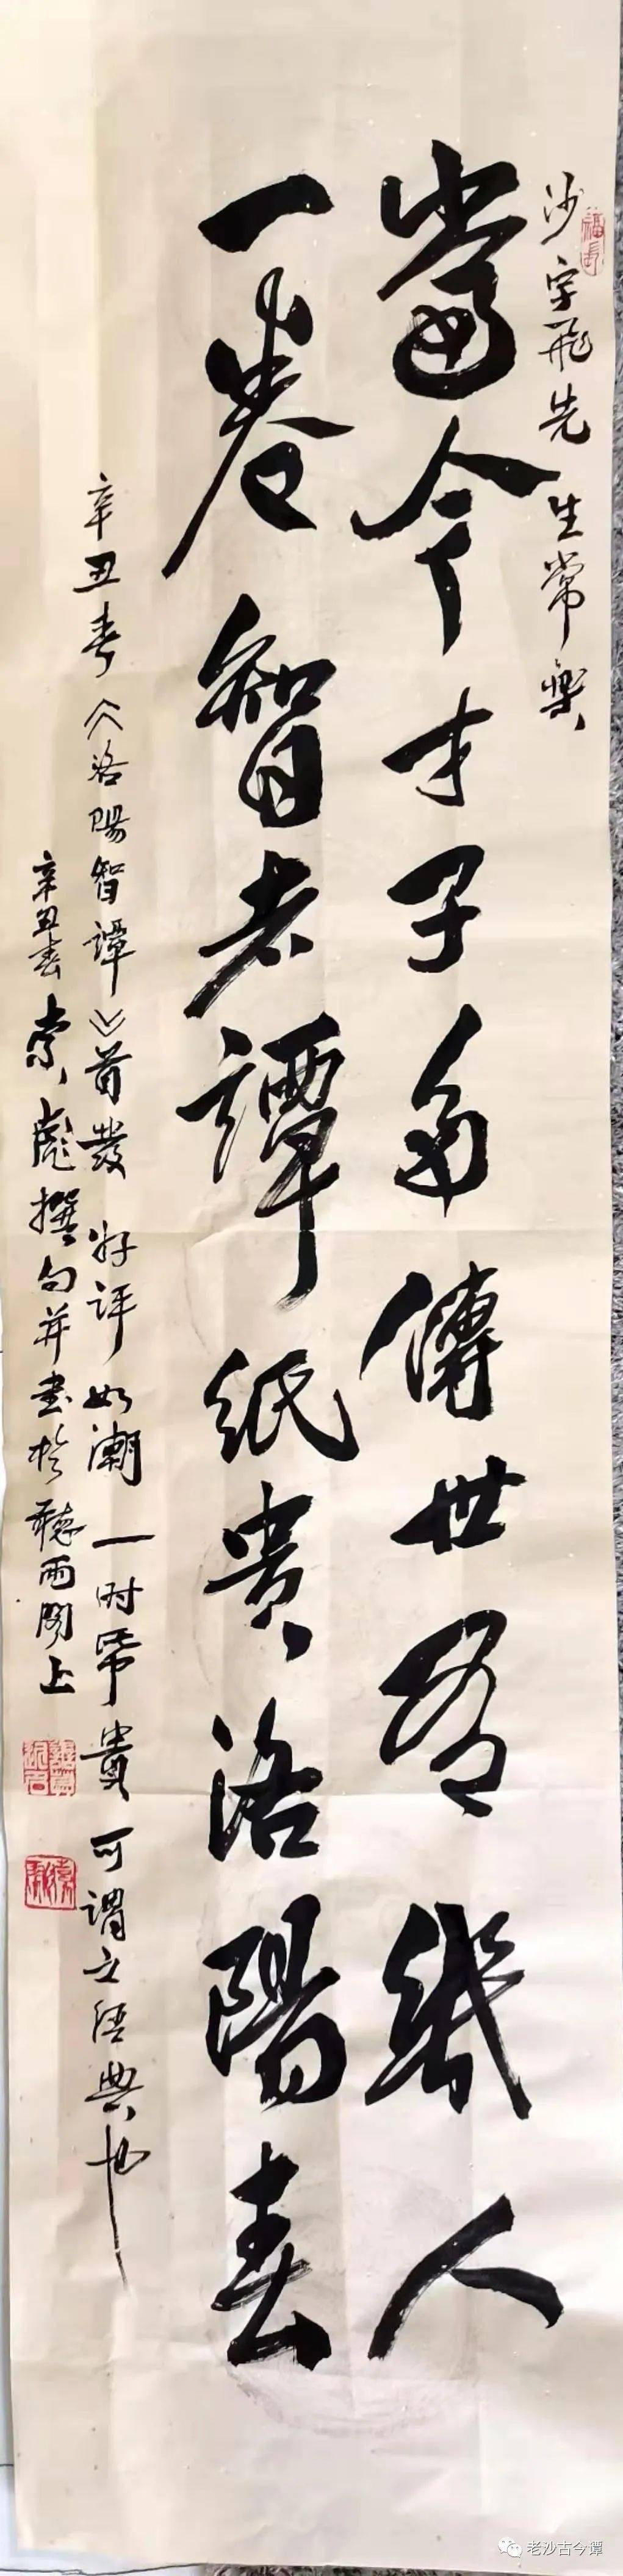 沙宇飛先生常樂
當今才子多傳世有幾人
一卷智者譚紙貴洛陽春
辛丑春《洛陽智譚》首發好評如潮一時帋貴可謂之經典也
辛丑春索彪撰句并書於聽雨閣上
老沙古今谭